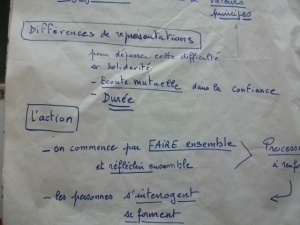 de valeurs
principes
Différences de représentations
pour dépasser cette difficulté
et solidarité
- Ecoute mutuelle dans la confiance
- Durée
L'action
- on commence par FAIRE ensemble
et réfléchir ensemble
Process
à renfo
- les personnes s'interrogent
se forment